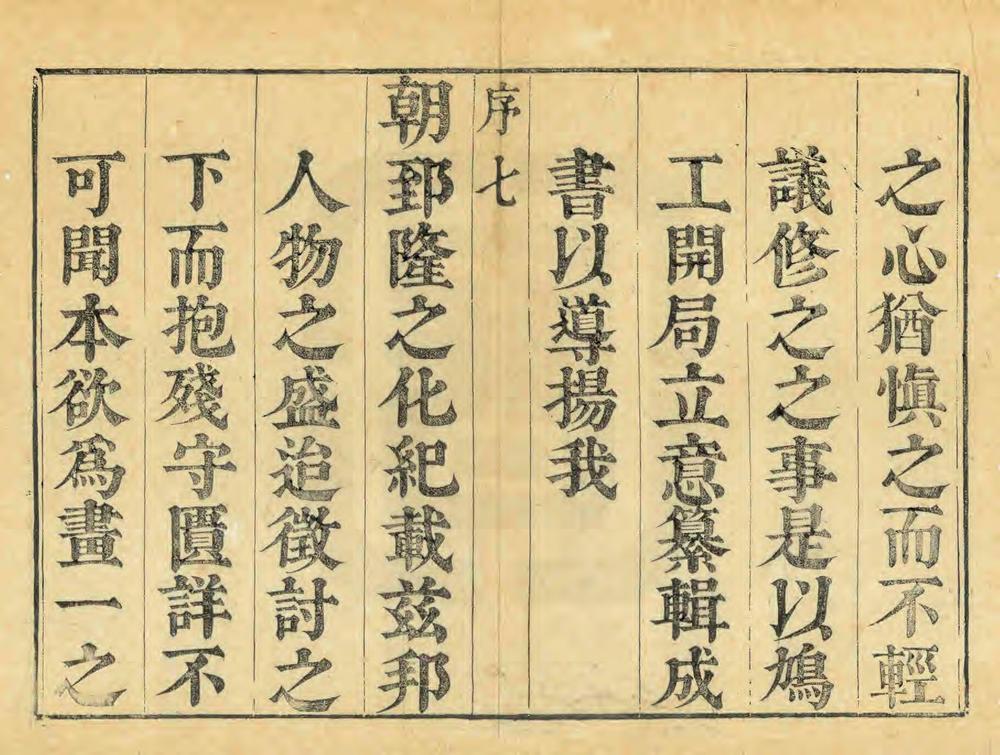 之心猶愼之而不輕
議修之之事是以鳩
工開局立意纂輯成
書以導揚我
序 七
朝郅隆之化紀載玆邦
人物之盛迨徵討之
下而抱殘守匱詳不
可聞本欲爲畫一之